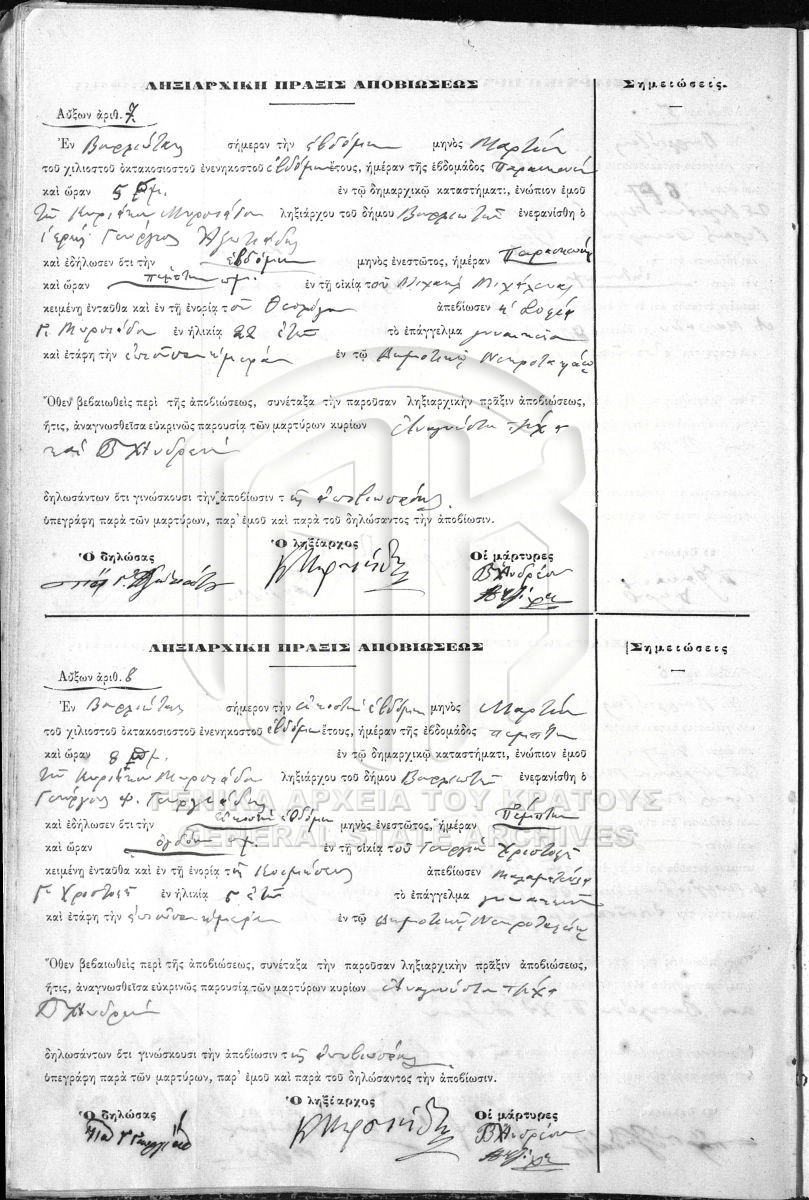 ΛΗΞΙΑΡΧΙΚΗ ΠΡΑΞΙΣ ΑΠΟΒΙΩΣΕΩΣ
Σημειώσεις.
Αὔξων ἀριθ. 7.
Ἐν Βαρλιώταις σήμερον τὴν ἑβδόμην μηνὸς Μαρτίου
τοῦ χιλιοστοῦ ὀκτακοσιοστοῦ ἐνενηκοστοῦ ἑβδόμου ἔτους, ἡμέραν τῆς ἑβδομάδος Παρασκευὴν
καὶ ὥραν 5 μμ. ἐν τῷ δημαρχικῷ καταστήματι, ἐνώπιον ἐμοῦ
τοῦ Κυριάκου ληξιάρχου τοῦ δήμου ἐνεφανίσθη ὁ
ἱερεὺς Γεώργιος
καὶ ἐδήλωσεν ὅτι τὴν ἑβδόμην μηνὸς ἐνεστῶτος, ἡμέραν Παρασκευὴν
καὶ ὥραν πέμπτην πμ. ἐν τῇ οἰκίᾳ τοῦ
κειμένῃ ἐνταῦθα καὶ ἐν τῇ ἐνορίᾳ τοῦ Θεολόγου ἀπεβίωσεν ἡ Σοφία
Γ. ἐν ἡλικίᾳ 22 ἐτῶν τὸ ἐπάγγελμα γυναικεῖα
καὶ ἐτάφη τὴν ἐπιοῦσαν ἡμέραν ἐν τῷ Δημοτικῷ Νεκροταφείῳ
Ὅθεν βεβαιωθεὶς περὶ τῆς ἀποβιώσεως, συνέταξα τὴν παροῦσαν ληξιαρχικὴν πρᾶξιν ἀποβιώσεως,
ἥτις, ἀναγνωσθεῖσα εὐκρινῶς παρουσίᾳ τῶν μαρτύρων κυρίων Ἀναγνώστου
καὶ Β Ἀνδρέου
δηλωσάντων ὅτι γινώσκουσι τὴν ἀποβίωσιν τῆς ἀποβιωσάσης.
ὑπεγράφη παρὰ τῶν μαρτύρων, παρ' ἐμοῦ καὶ παρὰ τοῦ δηλώσαντος τὴν ἀποβίωσιν.
Ὁ δηλώσας Ὁ ληξίαρχος Οἱ μάρτυρες
Β Ἀνδρέου
ΛΗΞΙΑΡΧΙΚΗ ΠΡΑΞΙΣ ΑΠΟΒΙΩΣΕΩΣ
Σημειώσεις
Αὔξων ἀριθ. 8
Ἐν Βαρλιώταις σήμερον τὴν εἰκοστὴν ἑβδόμην μηνὸς Μαρτίου
τοῦ χιλιοστοῦ ὀκτακοσιοστοῦ ἐνενηκοστοῦ ἑβδόμου ἔτους, ἡμέραν τῆς ἑβδομάδος πέμπτην
καὶ ὥραν 8 μ. ἐν τῷ δημαρχικῷ καταστήματι, ἐνώπιον ἐμοῦ
τοῦ Κυριάκου ληξιάρχου τοῦ δήμου ἐνεφανίσθη ὁ
Γεώργιος Φ. Γεωργιάδης
καὶ ἐδήλωσεν ὅτι τὴν εἰκοστὴν ἑβδόμην μηνὸς ἐνεστῶτος, ἡμέραν Πέμπτην
καὶ ὥραν ὀγδόην πμ. ἐν τῇ οἰκίᾳ τοῦ Γεωργίου Χριστοφῆ
κειμένῃ ἐνταῦθα καὶ ἐν τῇ ἐνορίᾳ τῆς Κοιμήσεως ἀπεβίωσεν
Γ. Χριστοφῆ ἐν ἡλικίᾳ ἐτῶν τὸ ἐπάγγελμα
καὶ ἐτάφη τὴν ἐπιοῦσαν ἡμέραν ἐν τῷ Δημοτικῷ Νεκροταφείῳ
Ὅθεν βεβαιωθεὶς περὶ τῆς ἀποβιώσεως, συνέταξα τὴν παροῦσαν ληξιαρχικὴν πρᾶξιν ἀποβιώσεως,
ἥτις, ἀναγνωσθεῖσα εὐκρινῶς παρουσίᾳ τῶν μαρτύρων κυρίων Ἀναγνώστου
Β Ἀνδρέου
δηλωσάντων ὅτι γινώσκουσι τὴν ἀποβίωσιν τῆς ἀποβιωσάσης.
ὑπεγράφη παρὰ τῶν μαρτύρων, παρ' ἐμοῦ καὶ παρὰ τοῦ δηλώσαντος τὴν ἀποβίωσιν.
Ὁ δηλώσας Ὁ ληξίαρχος Οἱ μάρτυρες
Β Ἀνδρέου
ΓΕΝΙΚΑ ΑΡΧΕΙΑ ΤΟΥ ΚΡΑΤΟΥΣ
GENERAL STATE ARCHIVES